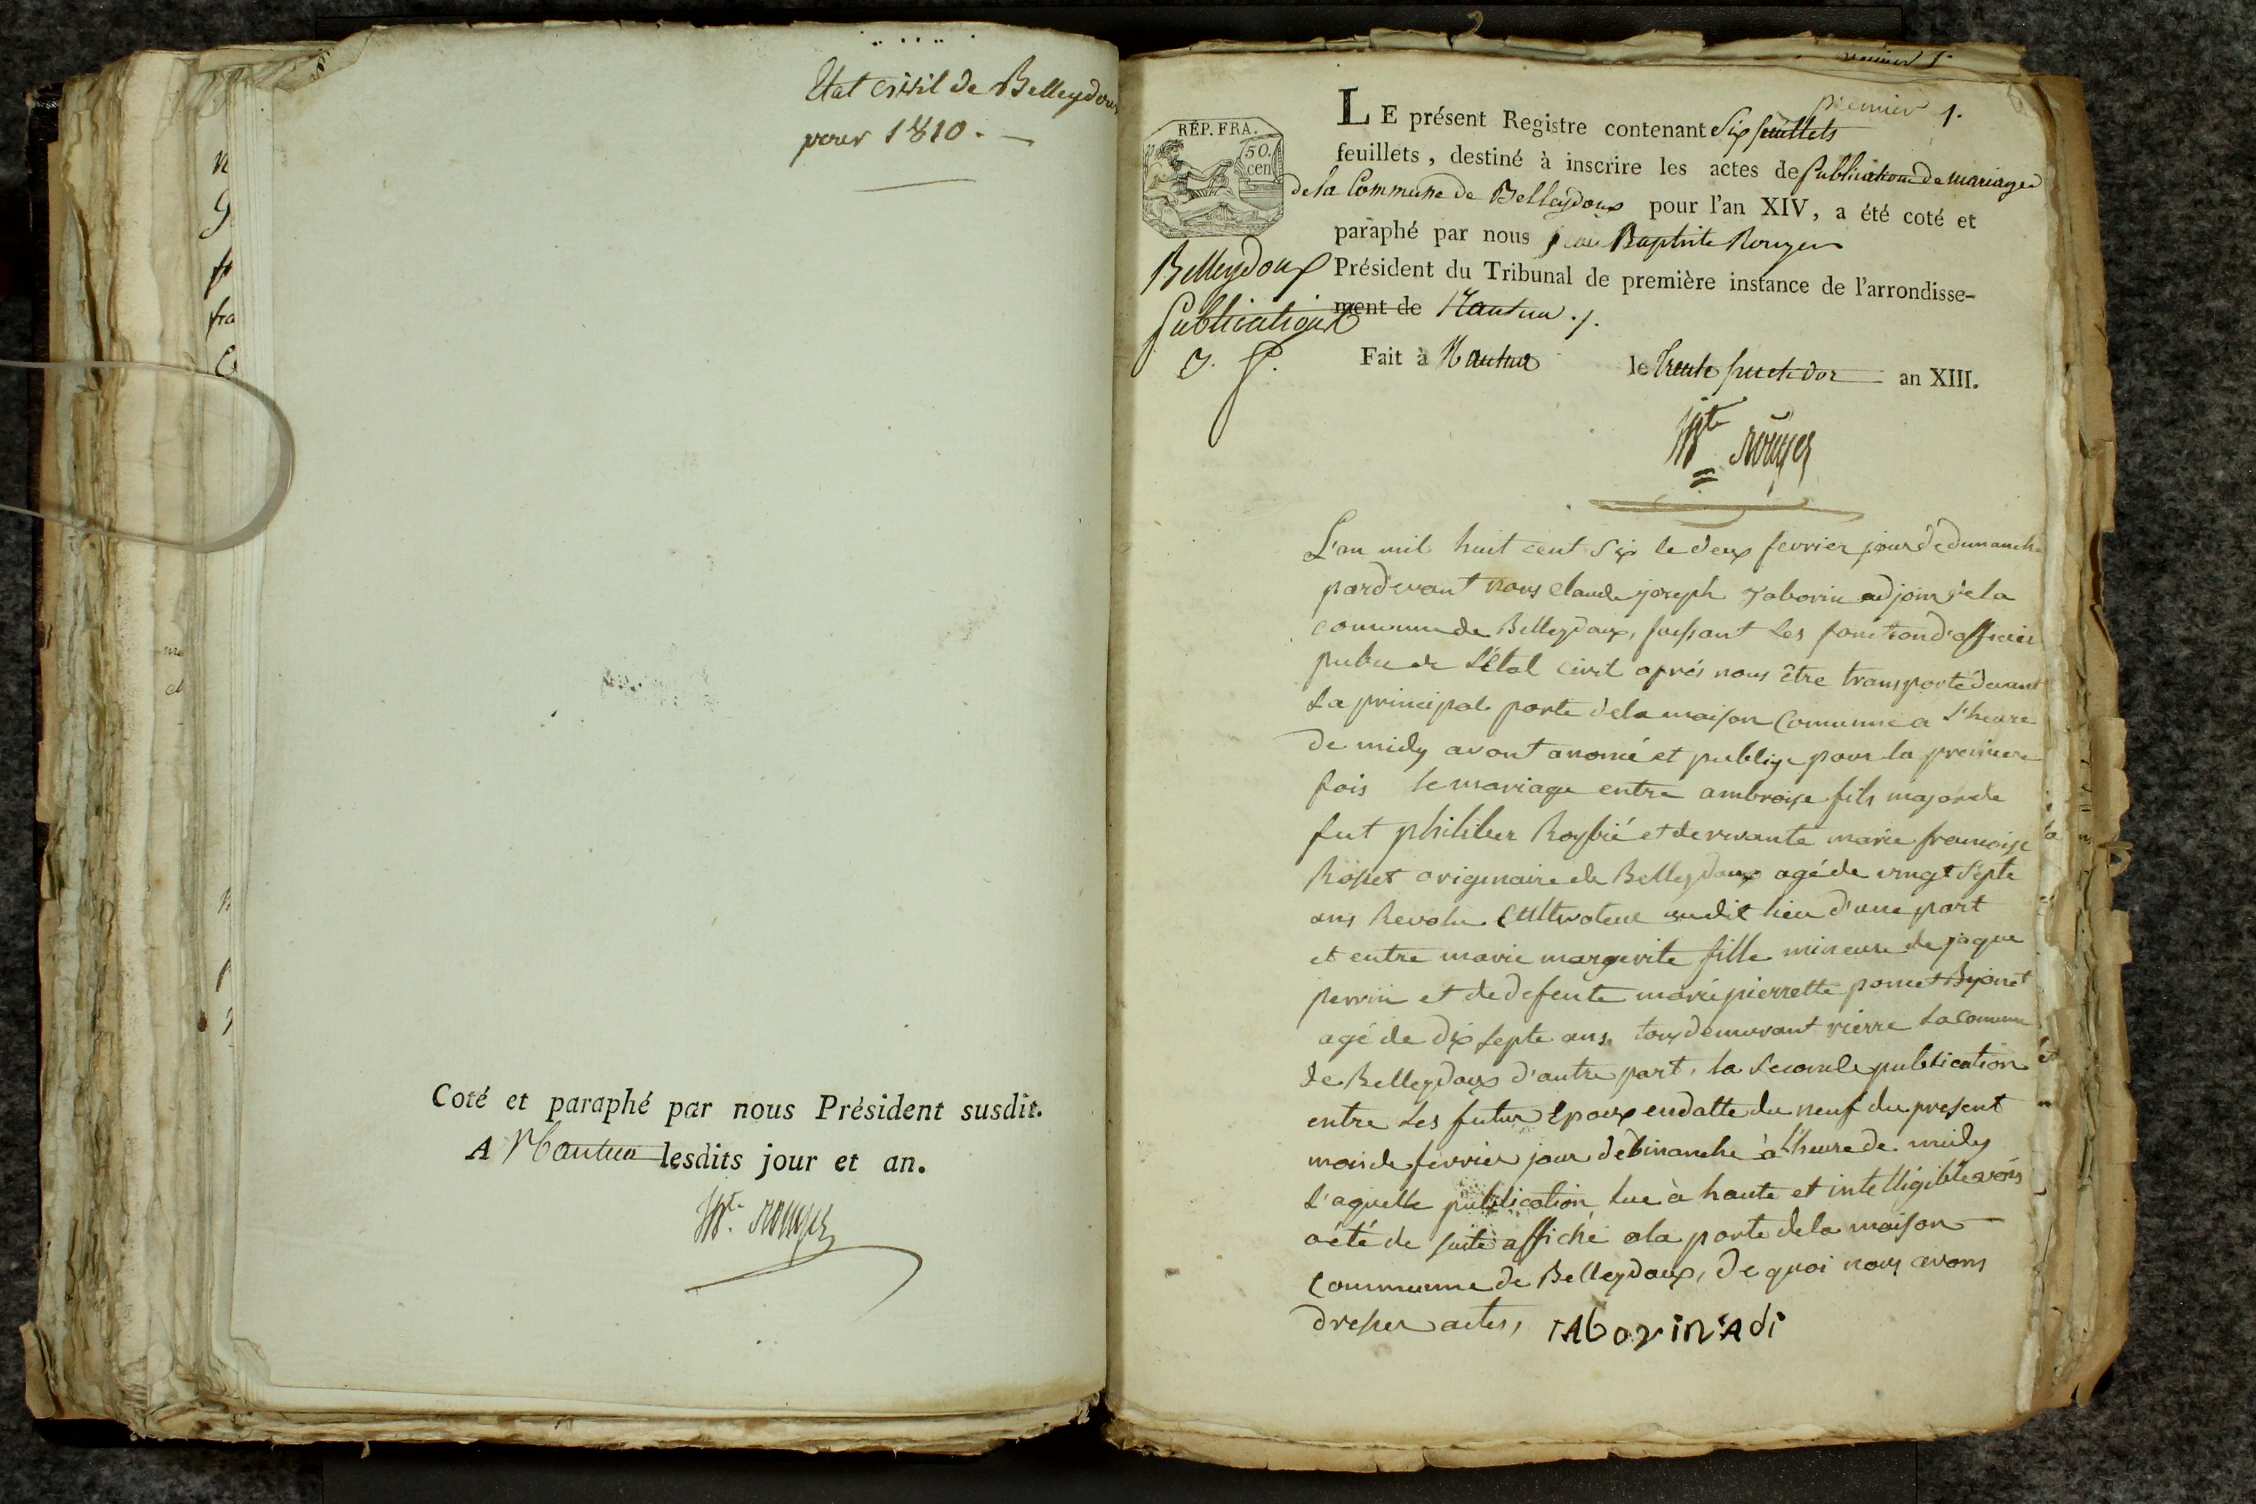 Etat civil de Belleydoux
pour 1810. —
Coté et paraphé par nous Président susdit.
A Nantua lesdits jour et an.
JBte. Rouyer
premier 1.
RÉP. FRA.
50.
cen
LE présent Registre contenant Six feuillets
feuillets, destiné à inscrire les actes de Publications de mariages
de la Commune de Belleydoux pour l'an XIV, a été coté et
paraphé par nous Jean Baptiste Rouyer
Président du Tribunal de première instance de l'arrondisse-
ment de Nantua ./.
Belleydoux
Publications
Fait à Nantua le Trente fructidor an XIII.
JBte Rouyer
L'an mil huit cent Six le deux fevrier jour de dimanche
pardevant nous Claude joseph Taborin adjoin de la
comune de Belleydoux, faisant Les fonction d'officier
public de L'état civil aprés nous être transporté devant
La principale porte de la maison Comunne a L'heure
de midy avont anoncé et publiye pour la premiere
fois le mariage entre ambroise fils majeur de
fut philiber Roybié et de vivante marie francoise
Rosset originaire de Belleydoux agé de vingt Septe
ans Revolu Cultivateur audit lieu d'une part
et entre marie margerite fille mineure de jaque
perrin et de defeute marie pierrette poncet Byonet
agé de dix septe ans, tous demeurant rierre La comune
de Belleydoux d'autre part, la Seconde publication
entre Les futur Epoux en datte du neuf du present
mois de fevrier jour de Dimanche à L'heure de midy
L'aquelle publication lue à haute et intelligible voix
a été de suite affiché a la porte de la maison
Communne de Belleydoux, de quoi nous avons
dresser actes, TAborin Adj